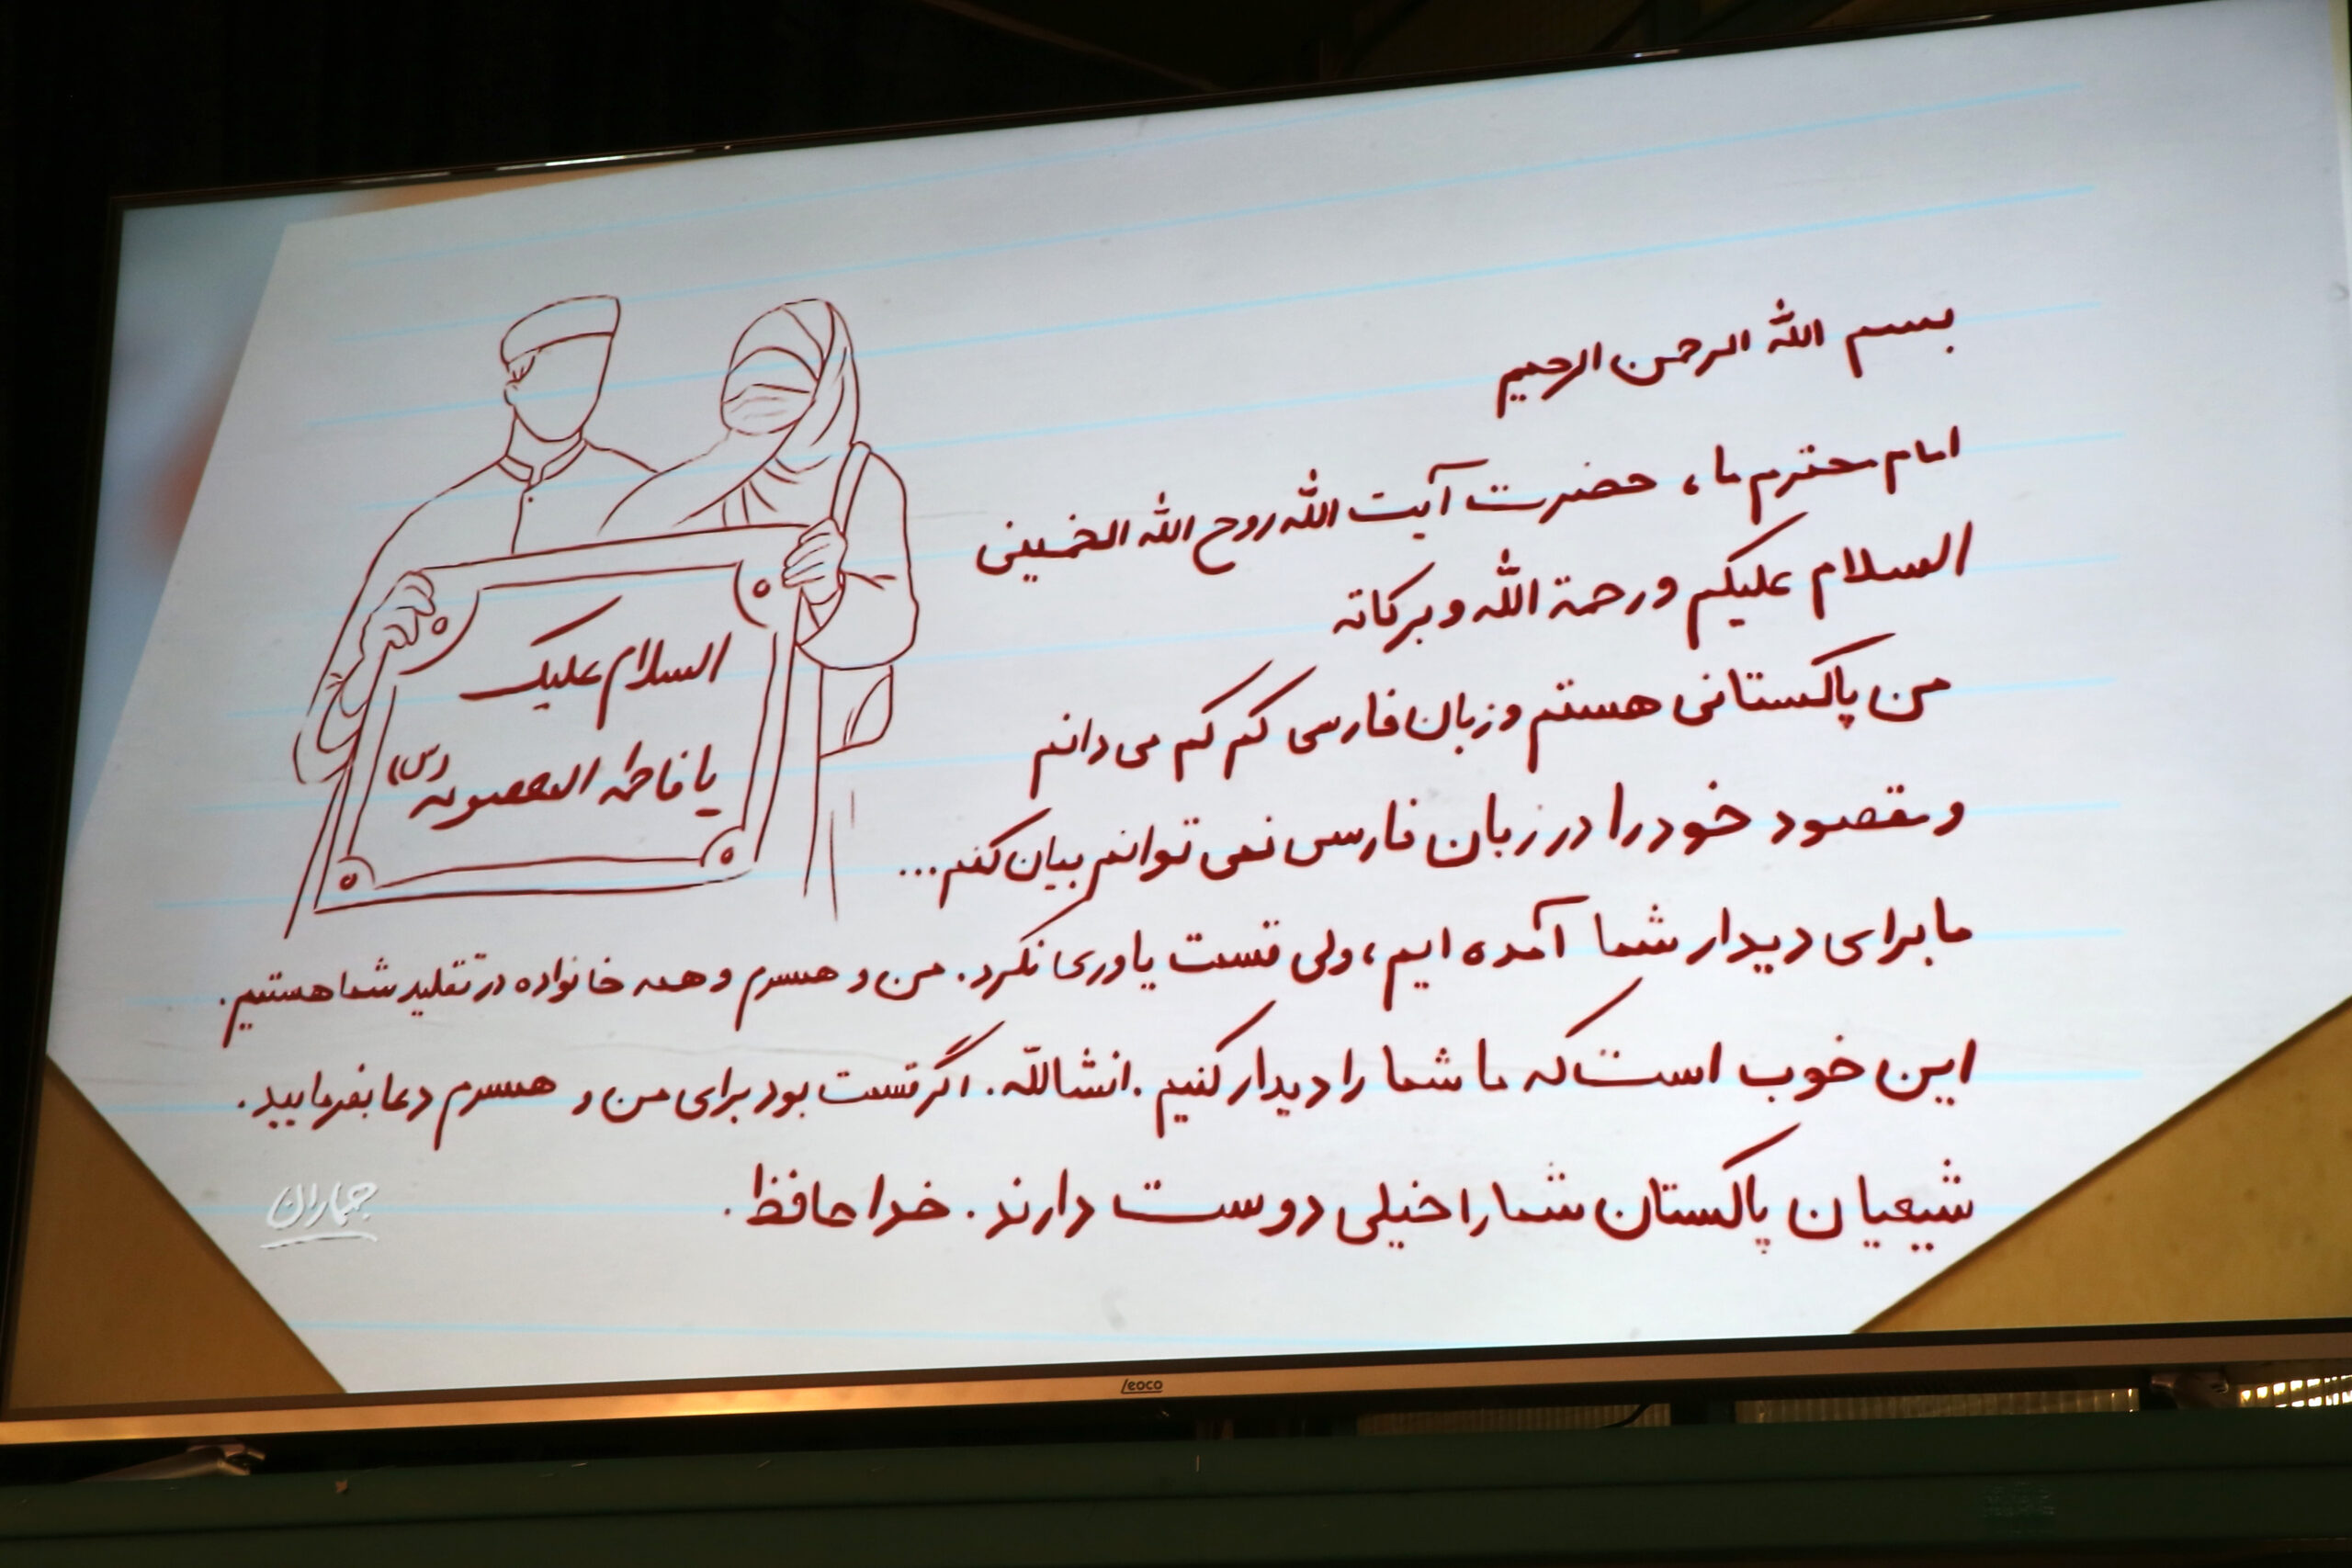 بسم الله الرحمن الرحیم
امام محترم ما، حضرت آیت الله روح الله الخمینی
السلام علیکم و رحمة الله و برکاته
من پاکستانی هستم و زبان فارسی کم کم می دانم
و مقصود خود را در زبان فارسی نمی توانم بیان کنم...
ما برای دیدار شما آمده ایم، ولی قسمت یاوری نکرد. من و همسرم و همه خانواده در تقلید شما هستیم.
این خوب است که ما شما را دیدار کنیم. انشاالله. اگر قسمت بود برای من و همسرم دعا بفرمایید.
شیعیان پاکستان شما را خیلی دوست دارند. خدا حافظ.
السلام علیک
یا فاطمه المعصومه (س)
جماران
Leoco